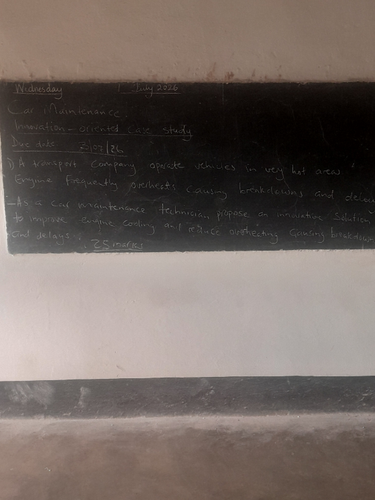 Wednesday July 2026
Car Maintenance.
Innovation-oriented case study
Due date
1) A transport company operate vehicles in very hot areas
Engine frequently overheats causing breakdowns and delays
- As a car maintenance technician propose an innovative solution
to improve engine cooling and reduce overheating causing breakdown
and delays.
25 marks